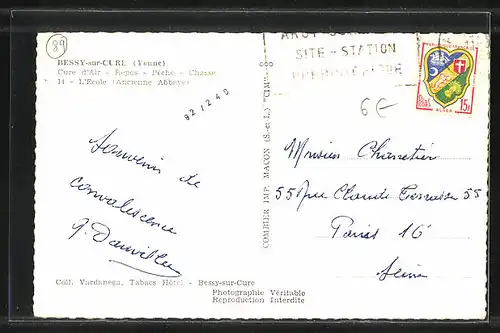 89
BESSY-sur-CURE (Yonne)
Cure d'Air - Repos - Pêche - Chasse
14 - L'Ecole (Ancienne Abbaye)
SITE - STATION
15F
ALGER
6€
921240
COMBIER IMP. MACON (S.-et-L.) "CIM"
Souvenir de
convalescence
Monsieur Charretier
55 Rue Claude Terrasse 55
Paris 16
Seine
Coll. Vardanega, Tabacs Hôtel - Bessy-sur-Cure
Photographie Véritable
Reproduction Interdite